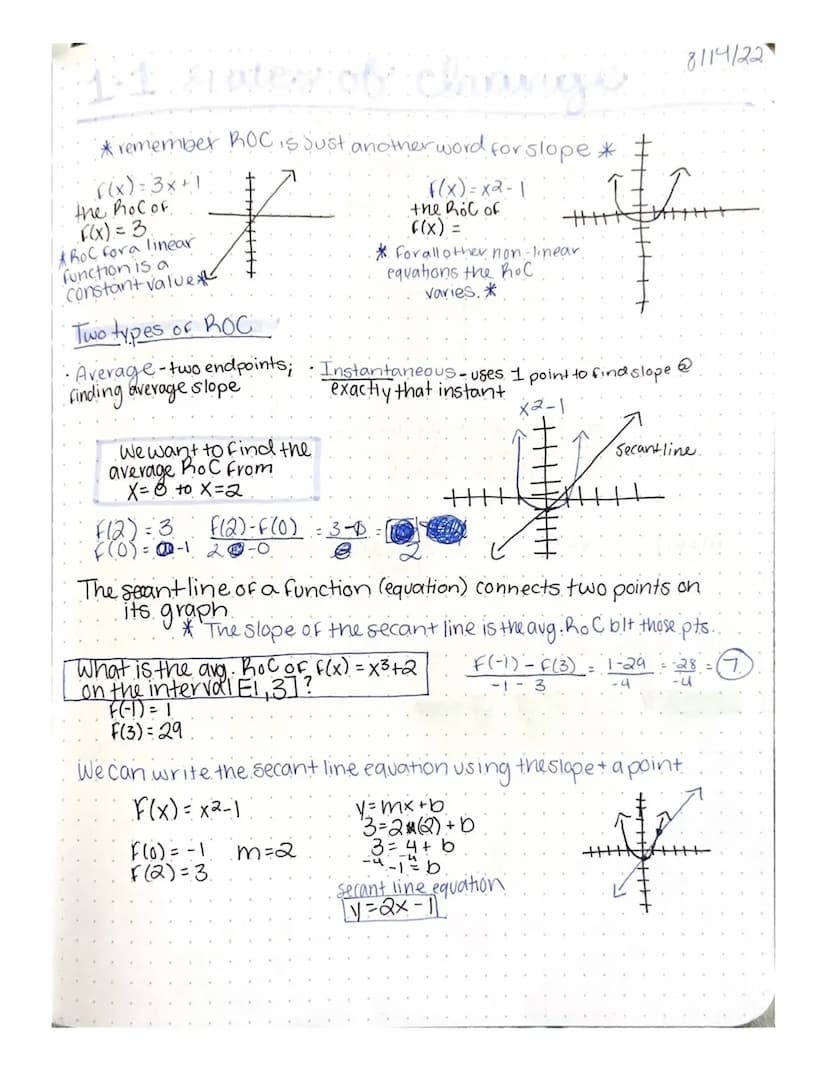 8/14/22
1.1 Rates of Change
*remember ROC is just another word for slope*
f(x) = 3x+1
the RoC of
f(x) = 3
*RoC for a linear
function is a
constant value*
f(x) = x2-1
the RoC of
f(x) =
* For all other non-linear
equations the RoC
varies.*
Two types of ROC
· Average - two endpoints;
finding average slope
· Instantaneous - uses 1 point to find slope @
exactly that instant
x2-1
secant line
We want to find the
average RoC from
x=0 to x=2
f(2) = 3
f(0) = -1
f(2)-f(0)
2 -0
= 3-
=
2
The secant line of a function (equation) connects two points on
its graph
* The slope of the secant line is the avg. RoC b/t those pts.
What is the avg. RoC of f(x) = x3+2
on the interval [-1, 3]?
f(-1) = 1
f(3) = 29
F(-1) - f(3) = 1-29 = -28 = 7
-1 - 3 -4 -4
We can write the secant line equation using the slope + a point
F(x) = x2-1
F(0) = -1 m=2
F(2) = 3
y=mx+b
3=2(2) + b
3= 4+ b
-4 -4
-1 = b
secant line equation
y=2x-1